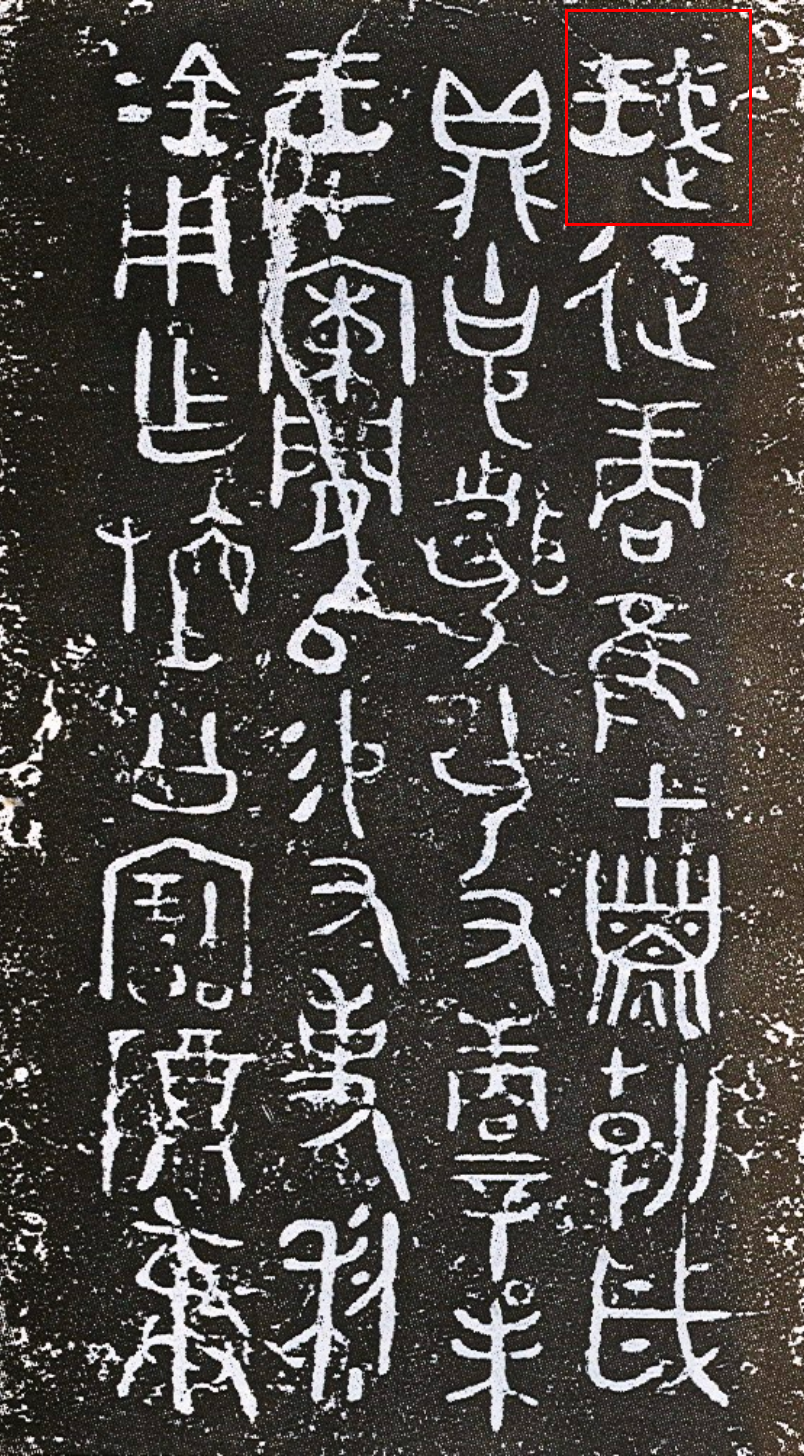 珷征商隹甲子朝歲
鼎克聞夙又商辛未
王才闌𠂤易又事利
金用乍旜公寶尊彝